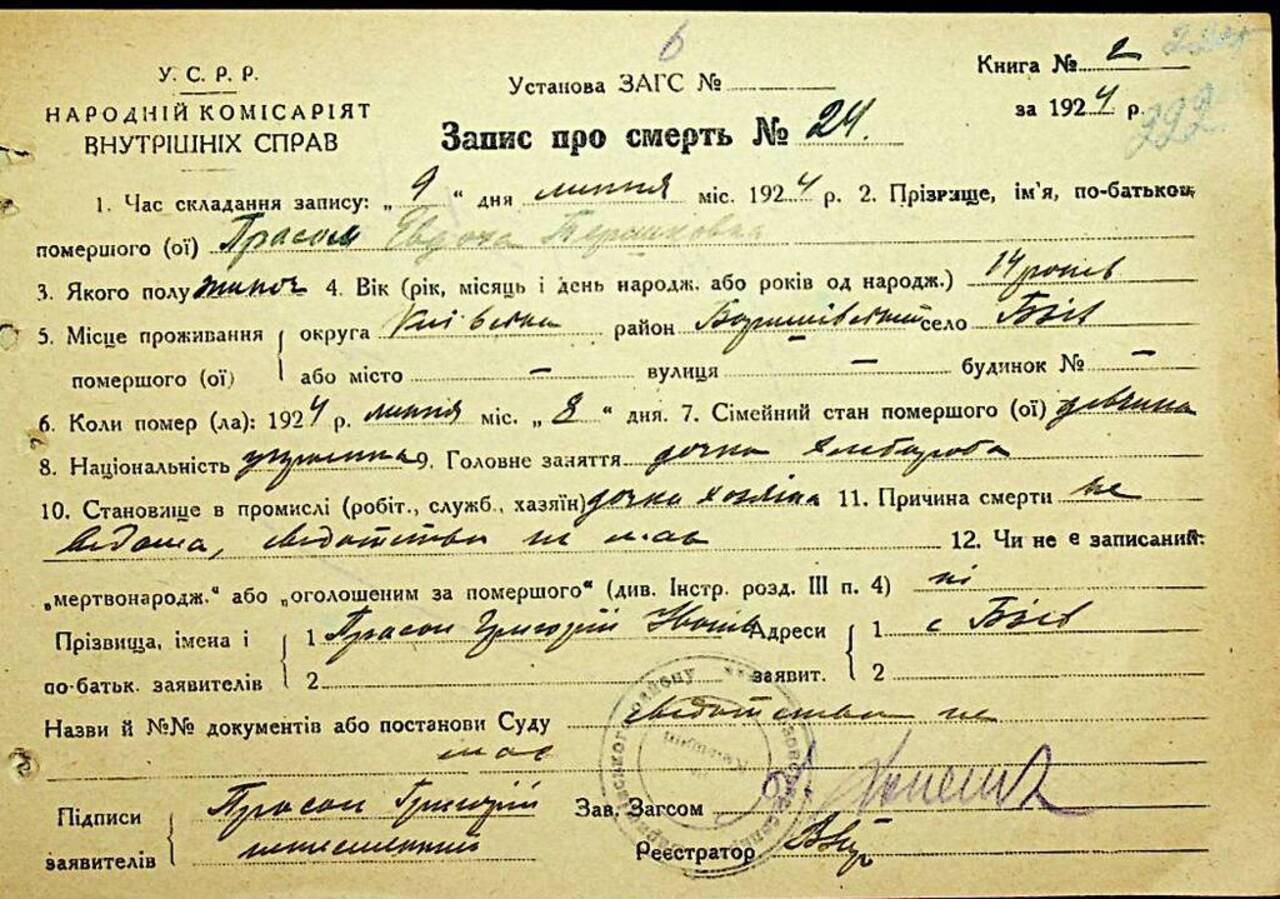 6
Книга № 2
У. С. Р. Р.
Установа ЗАГС №
за 1924 р.
222
НАРОДНІЙ КОМІСАРІЯТ
ВНУТРІШНІХ СПРАВ
Запис про смерть № 24.
1. Час складання запису: „ 9 “ дня липня міс. 1924 р. 2. Прізвище, ім'я, по-батькови
помершого (ої) Прасол Евдоха
3. Якого полу жиноч 4. Вік (рік, місяць і день народж. або років од народж.) 14 років
5. Місце проживання округа Киівська район село Бзів
помершого (ої) або місто – вулиця – будинок № –
6. Коли помер (ла): 1924 р. липня міс. „ 8 “ дня. 7. Сімейний стан помершого (ої) дівчина
8. Національність украинка 9. Головне заняття дочка хлибороба
10. Становище в промислі (робіт., служб., хазяїн) дочка хозяіна 11. Причина смерти не
відома, свидотства ни має 12. Чи не є записаний:
„мертвонародж.“ або „оголошеним за помершого“ (див. Інстр. розд. III п. 4) ні
Прізвища, імена і 1 Прасол Григорій Адреси 1 с Бзів
по-батьк. заявителів 2 заявит. 2
Назви й №№ документів або постанови Суду свидотства ни
має
Підписи Прасол Григорій Зав. Загсом
заявителів неписменний Реєстратор